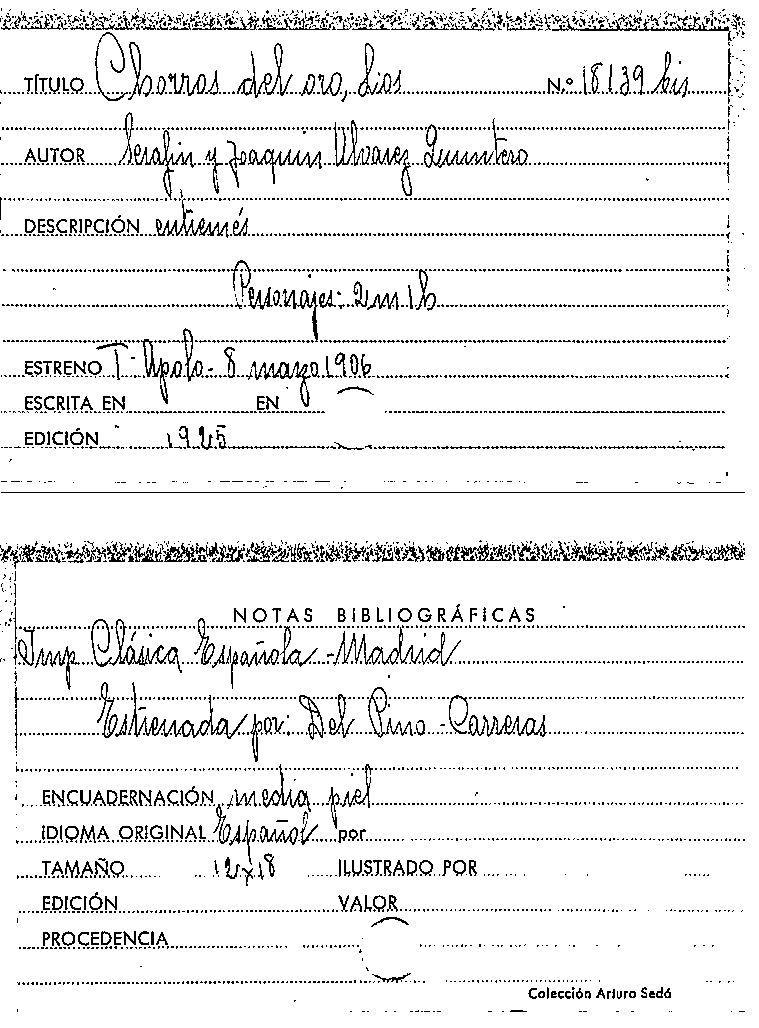 TÍTULO Chorros del oro, Los N.º 18139 bis
AUTOR Serafin y Joaquin Alvarez Quintero
DESCRIPCIÓN entremés
Personajes: 2 m 1 h
ESTRENO T. Apolo - 8 marzo 1906
ESCRITA EN EN
EDICIÓN 1925
NOTAS BIBLIOGRÁFICAS
Imp Clásica Española - Madrid
Estrenada por: Del Pino - Carreras
ENCUADERNACIÓN media piel
IDIOMA ORIGINAL Español por
TAMAÑO 12x18 ILUSTRADO POR
EDICIÓN VALOR
PROCEDENCIA
Colección Arturo Sedó